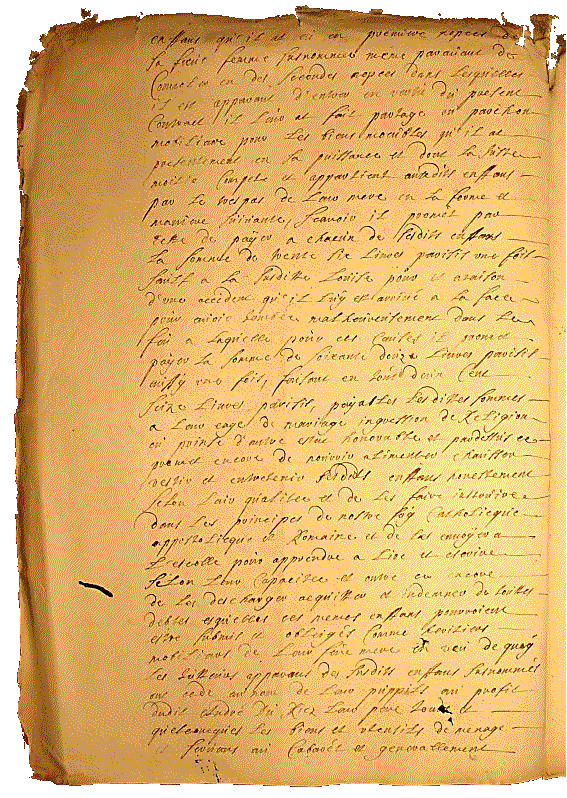 enffans qu'il at eu en premiere nopces de
sa ficie femme surnommee meme paravant de
Convoler en des secondes nopces dans lesquelles
il est apparant d'entrer en vertu du present
Contract il leur at fait partage ou parchon
mobiliaire pour les biens meubles qu'il at
presentement en sa puissance et dont la juste
moitie Compete et appartient ausdits enffans
par le trespas de leur mere en la forme et
maniere suivante, scavoir il promet par
cette de payer a chacun de sesdits enffans
la somme de trente six Livres parisis une fois
sauff a la susditte Louise pour et a raison
d'une accident qu'il luy est arrivé a la face
pour avoir tombée malheureusement dans le
feu a laquelle pour ces causes il promet
payer la somme de soixante douze Livres parisis
aussy une fois, faisant en tout Cent
seize Livres parisis, payables lesdittes sommes
a leur eage de mariage ingression de Religion
ou prinse d'autre estat honorable et pardessus ce
promet encore de nourrir alimenter chausser
vestir et entretenir sesdits enffans honestement
selon leur qualitee et de les faire instruire
dans les principes de nostre foy Catholicque
appostolicque et Romaine et de les envoyer a
l'escolle pour apprendre a lire et escrire
selon leur capacitee et outre ce encore
de les descharger acquitter et indemner de toutes
debtes esquelles ces memes enffans pourroient
estre submis et obligés comme heritiers
mobiliairs de leur feue mere en veu de quoy
les tutteurs apparans desdits enffans surnommés
ont cedé au nom de leur puppils au profit
dudit André Du Riez leur pere tous et
quelconcques les biens et utensils de menage
et servans au Cabaret et generallement